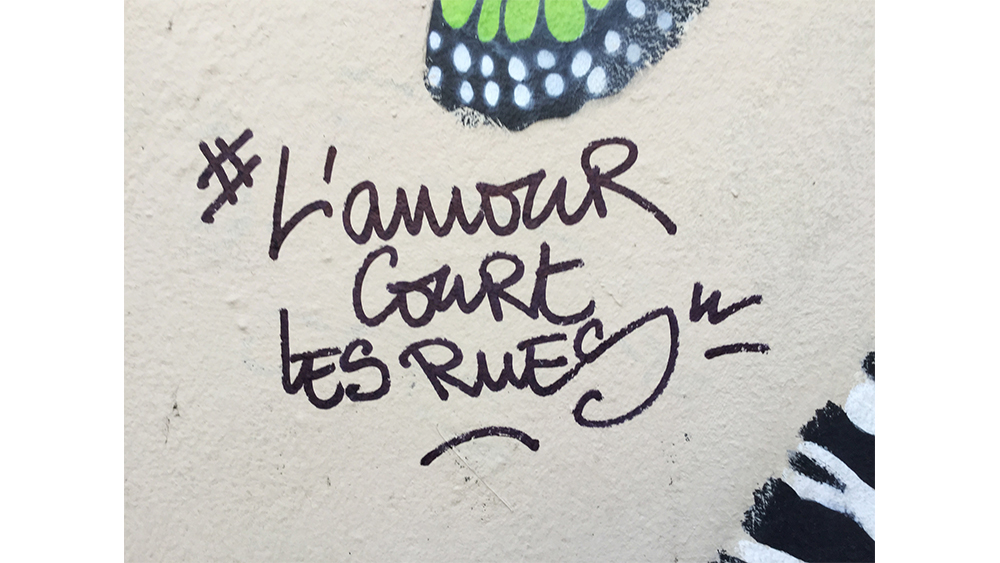 #L'amour
court
les rues"